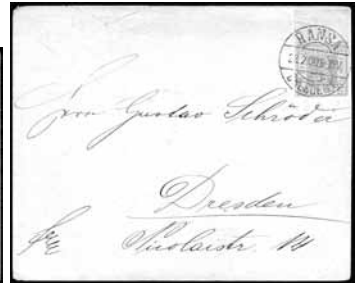 HANSA
Herrn Gustav Schröder
Dresden
Nicolaistr. 14